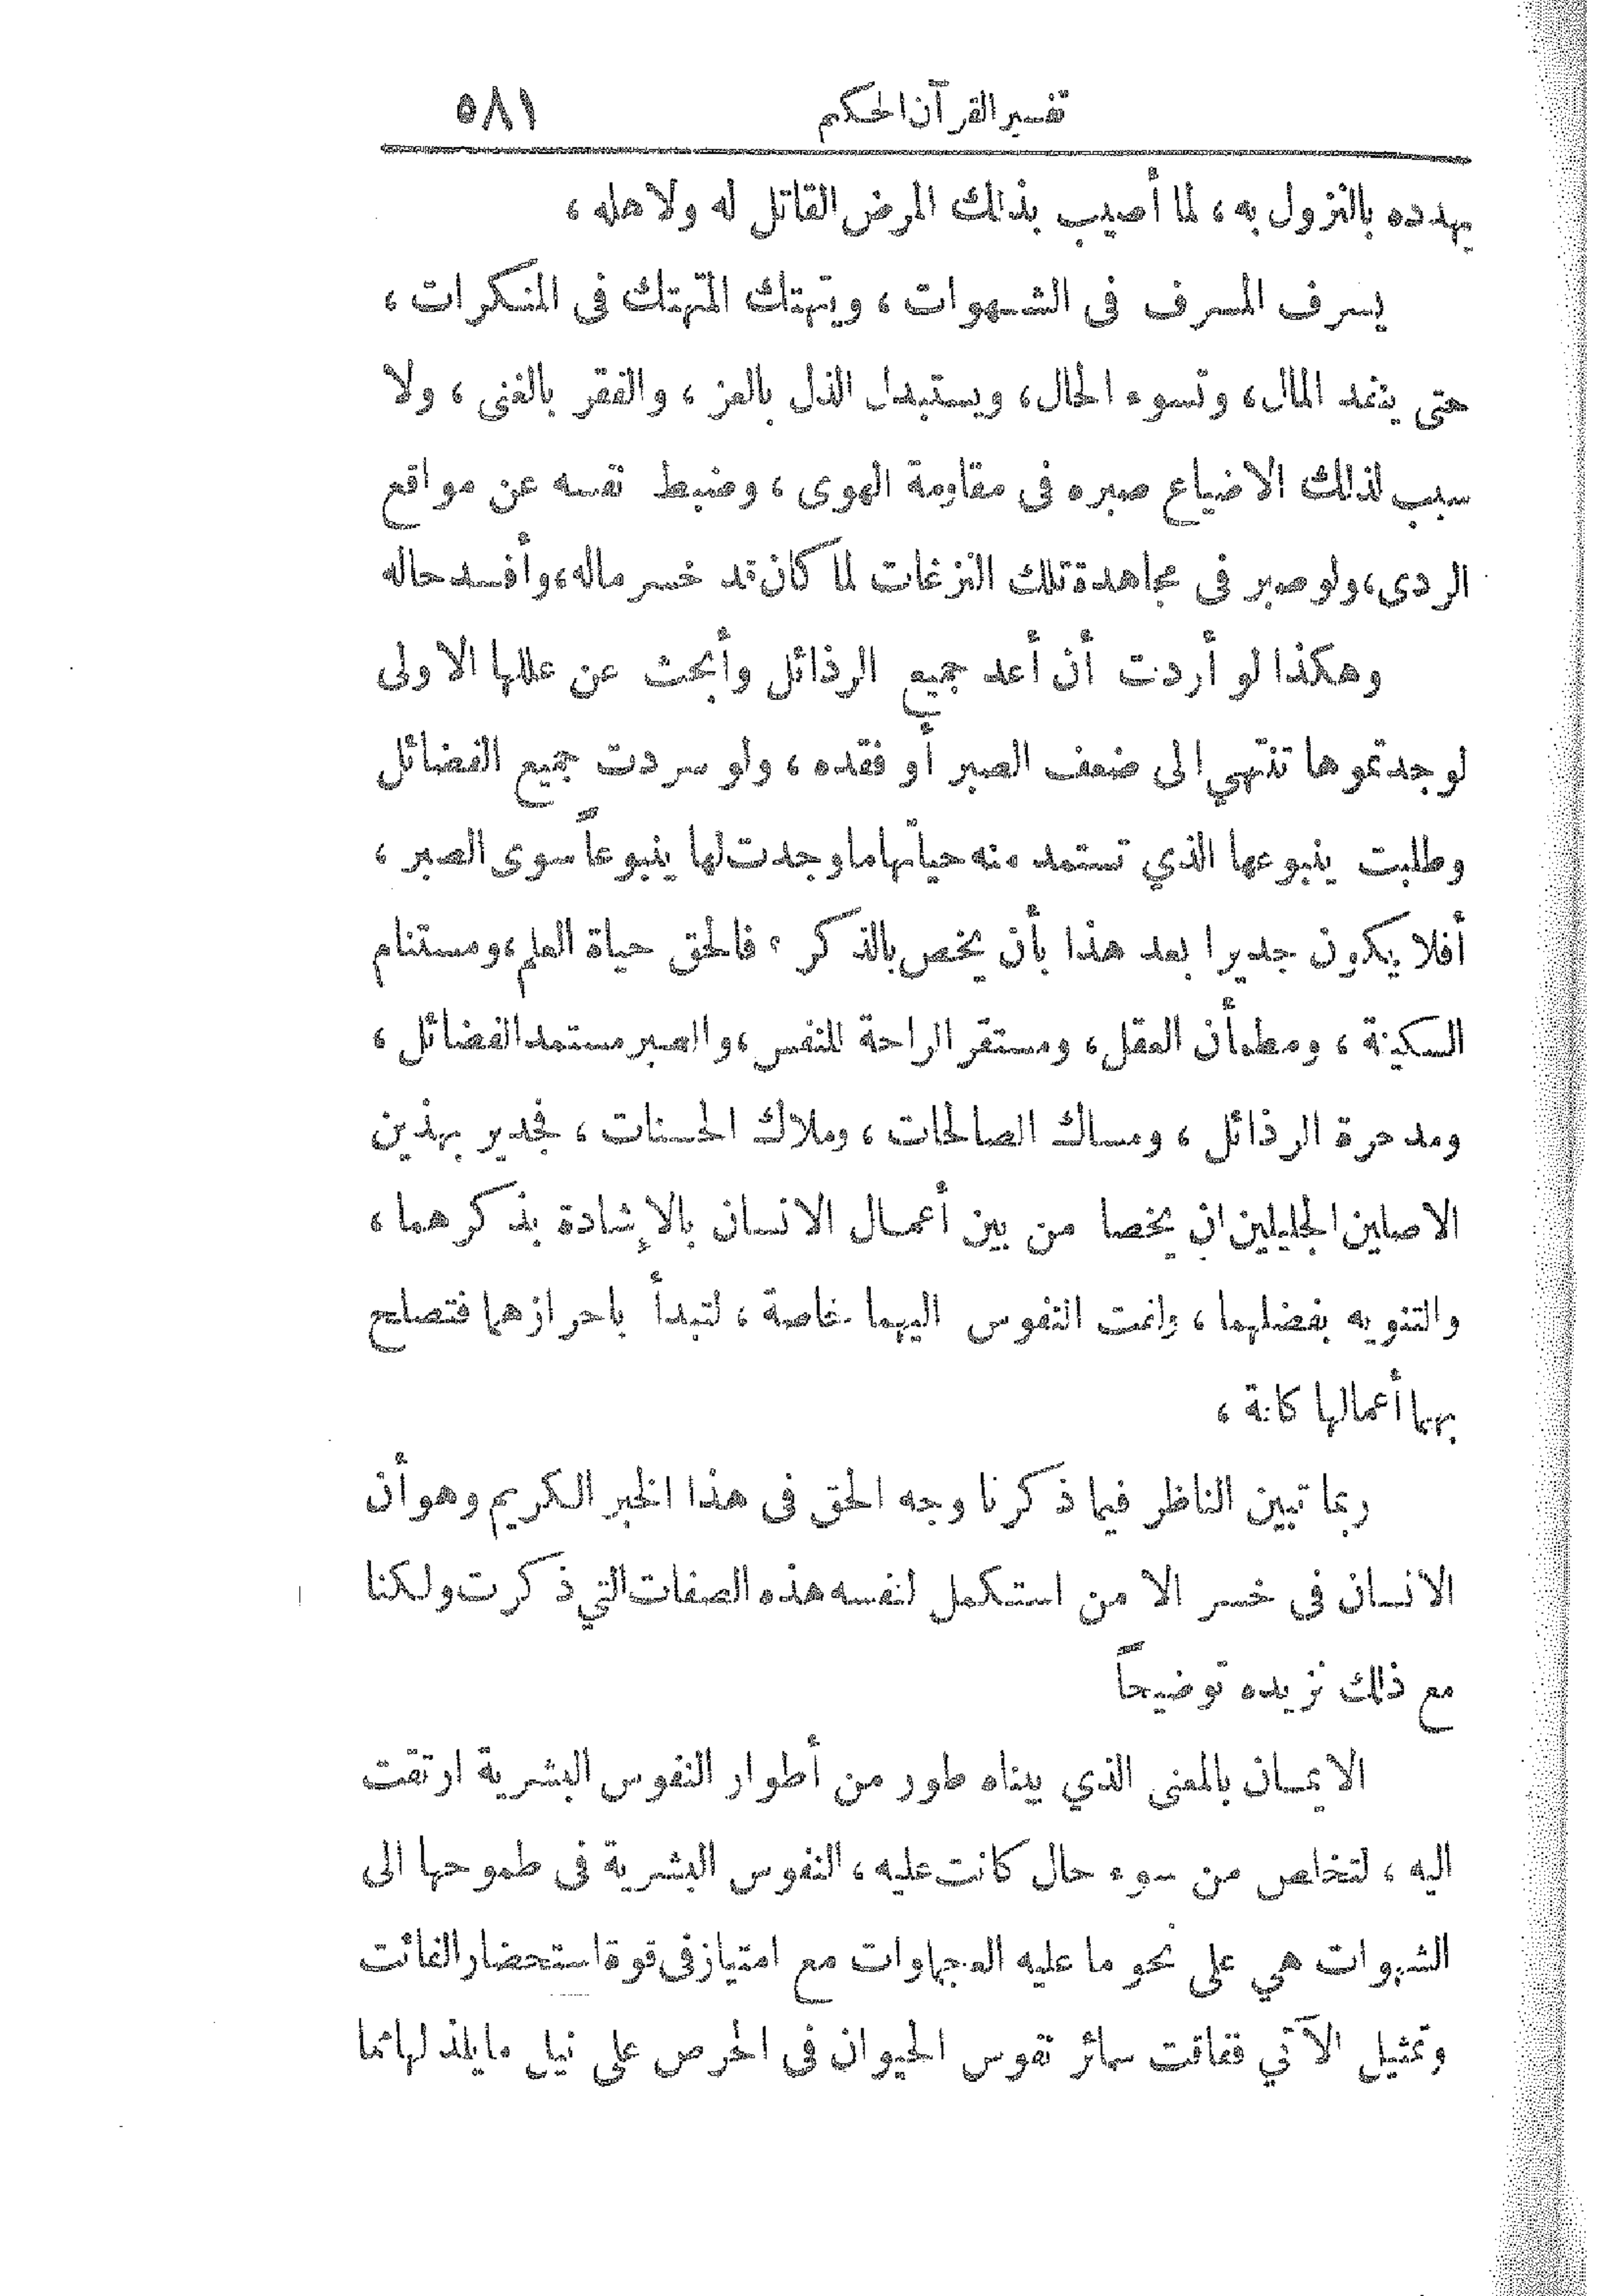 تفسير القرآن الحكيم ٥٨١
يهدده بالنزول به، لما أصيب بذلك المرض القاتل له ولاهله،
يسرف المسرف فى الشهوات، ويتهتك المتهتك فى المنكرات،
حتى ينفد المال، وتسوء الحال، ويستبدل الذل بالعز، والفقر بالغنى، ولا
سبب لذلك الاضياع صبره فى مقاومة الهوى، وضبط نفسه عن مواقع
الردى، ولو صبر فى مجاهدة تلك النزغات لما كان قد خسر ماله، وأفسد حاله
وهكذا لو أردت أن أعد جميع الرذائل وأبحث عن عللها الاولى
لوجدتموها تنتهي الى ضعف الصبر أو فقده، ولو سردت جميع الفضائل
وطلبت ينبوعها الذي تستمد منه حياتها ما وجدت لها ينبوعاً سوى الصبر،
أفلا يكون جديرا بعد هذا بأن يخص بالذكر؟ فالحق حياة العلم، ومستنام
السكينة، ومطمأن العقل، ومستقر الراحة للنفس، والصبر مستمد الفضائل،
ومدحرة الرذائل، ومساك الصالحات، وملاك الحسنات، فجدير بهذين
الاصلين الجليلين ان يخصا من بين أعمال الانسان بالإشادة بذكرهما،
والتنويه بفضلهما، ولفت النفوس اليهما خاصة، لتبدأ باحرازهما فتصلح
بهما أعمالها كافة،
ربما تبين الناظر فيما ذكرنا وجه الحق فى هذا الخبر الكريم وهو أن
الانسان فى خسر الا من استكمل لنفسه هذه الصفات التي ذكرت ولكنا
مع ذلك نزيده توضيحاً
الايمان بالمعنى الذي بيناه طور من أطوار النفوس البشرية ارتقت
اليه، لتخلص من سوء حال كانت عليه، النفوس البشرية فى طموحها الى
الشهوات هي على نحو ما عليه العجماوات مع امتياز فى قوة استحضار الفائت
وتمثيل الآتي ففاقت سائر نفوس الحيوان فى الحرص على نيل ما يلذ لها مما